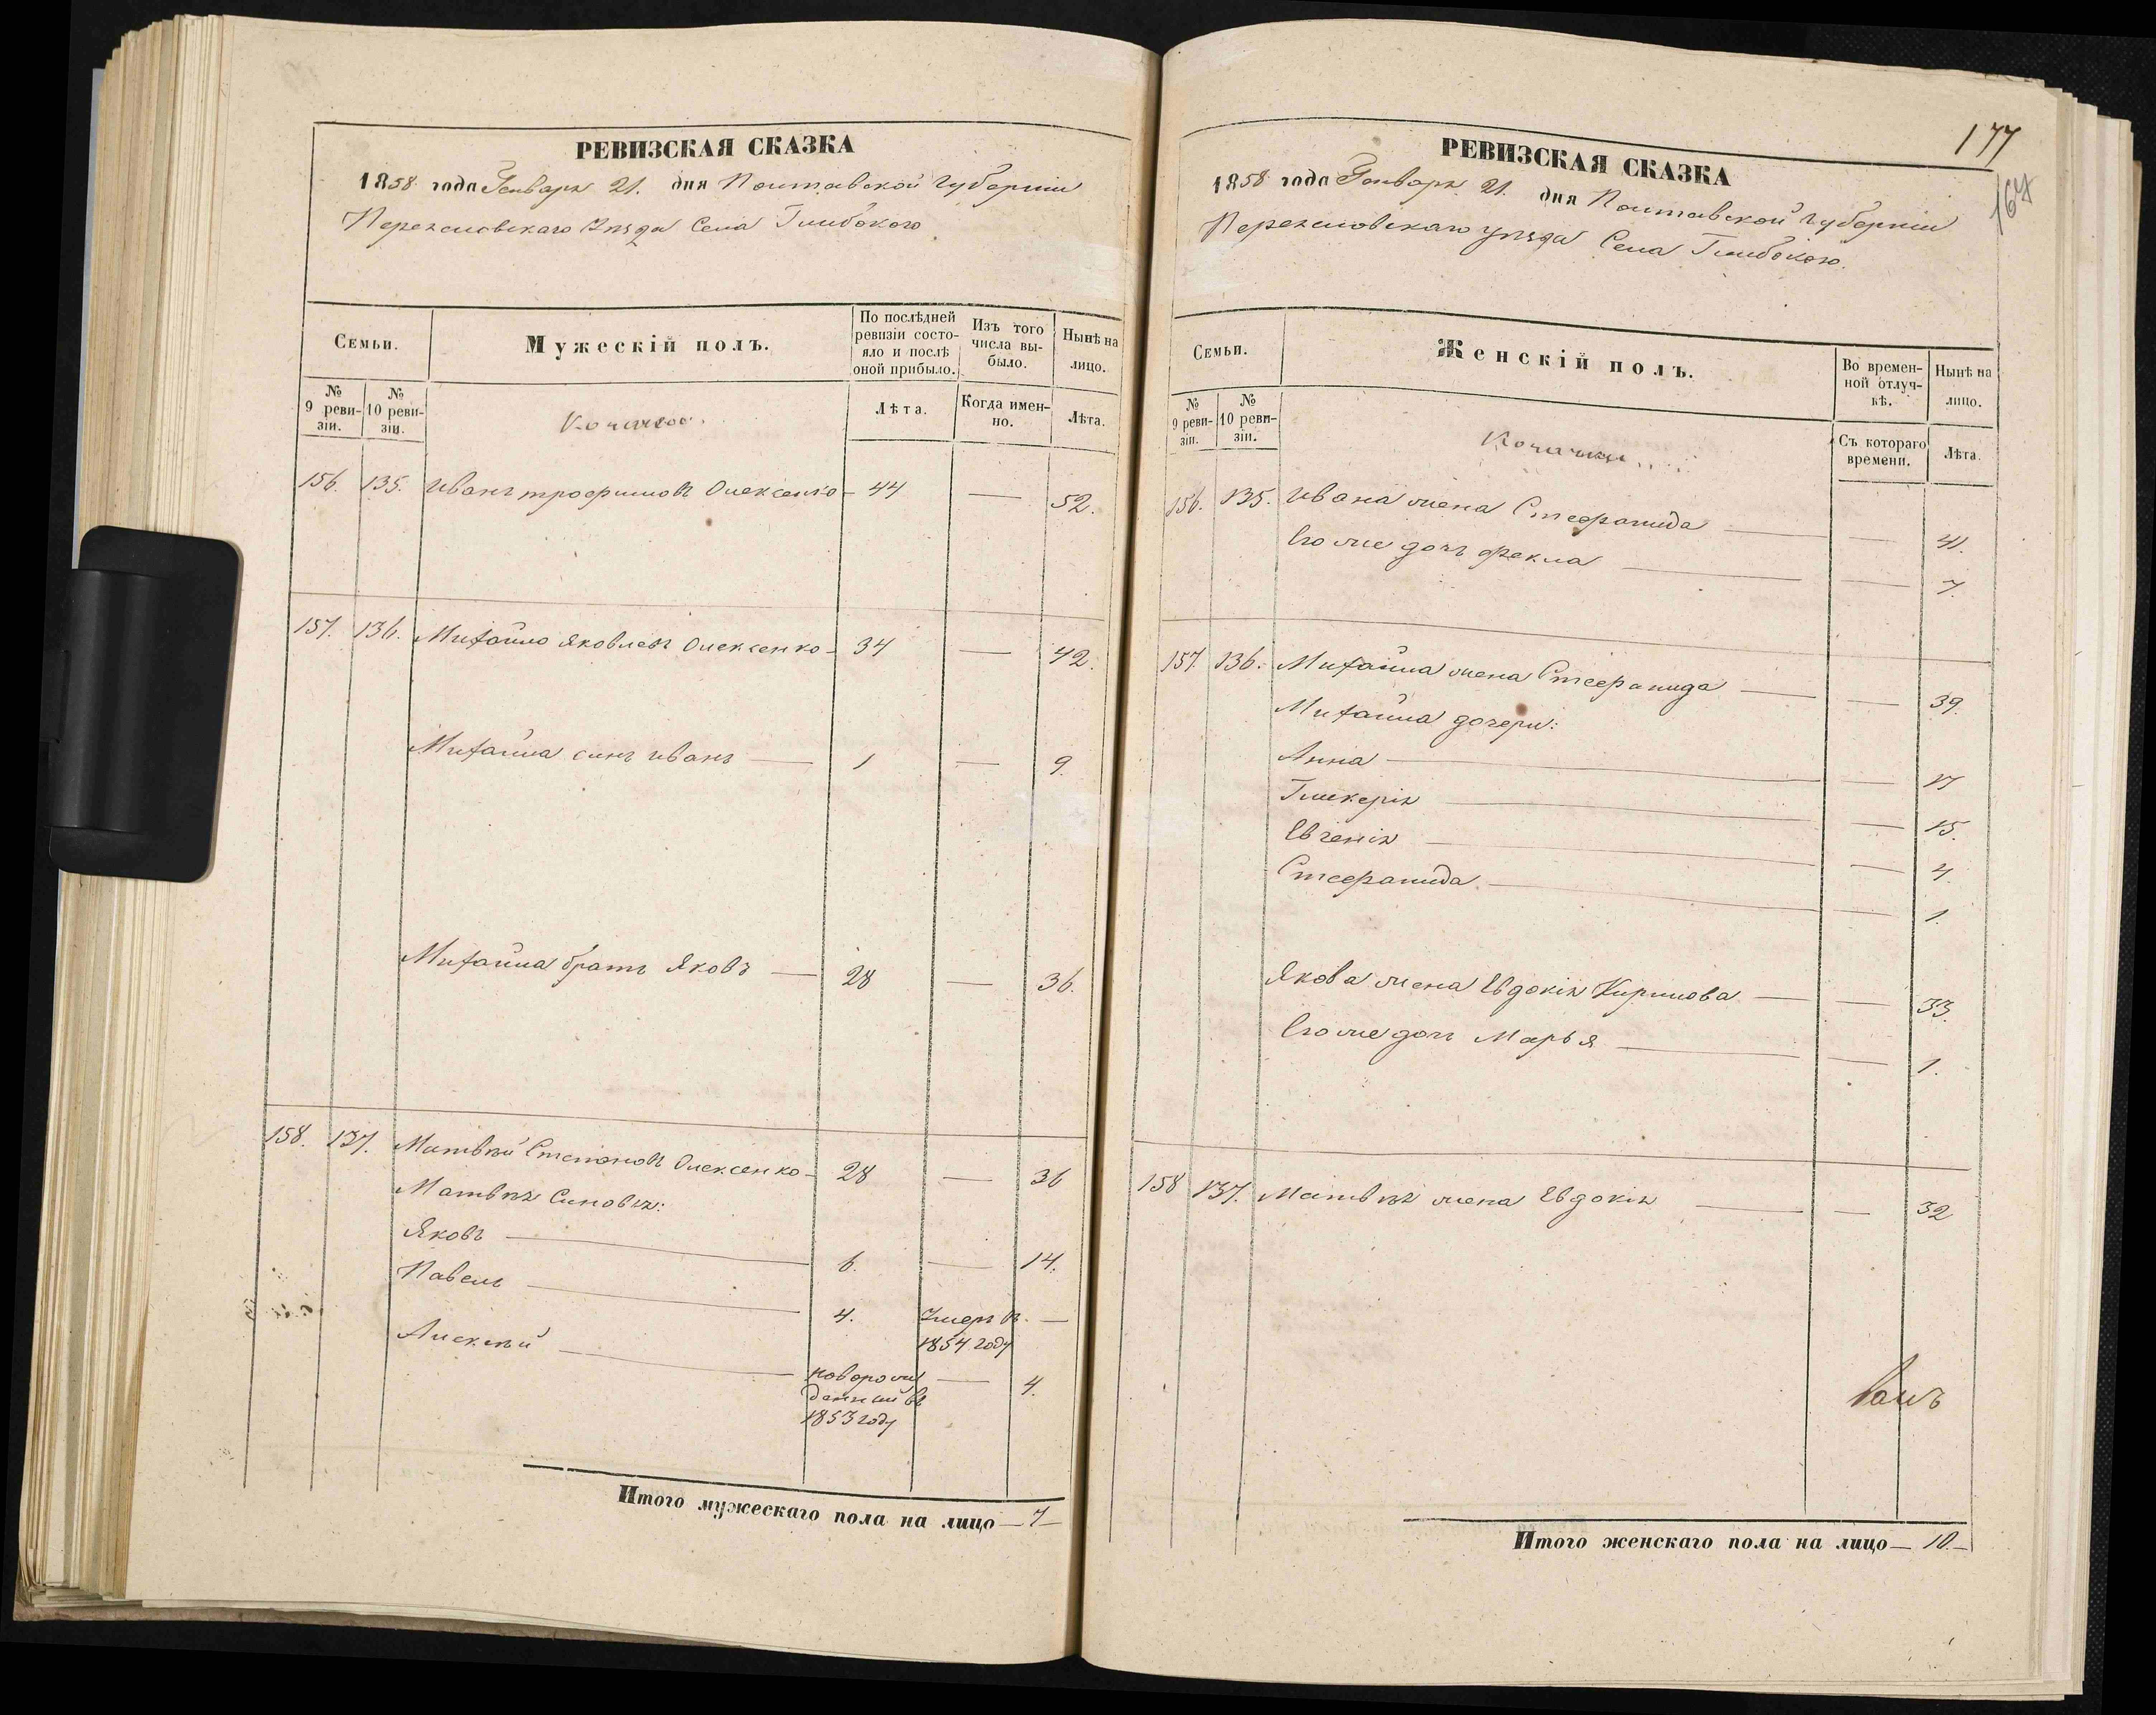 РЕВИЗСКАЯ СКАЗКА
1858 года Генваря 21. дня Полтавской губерніи
Переяславскаго Уѣзда Села Глибокого
Семьи.
Мужескій полъ.
По послѣдней ревизіи состояло и послѣ оной прибыло.
Изъ того числа выбыло.
Нынѣ на лицо.
№ 9 ревизіи.
№ 10 ревизіи.
Лѣта.
Когда именно.
Лѣта.
156. 135. Иванъ трофимовъ Олексенко — 44 — 52.
157. 136. Михайло Яковлевъ Олексенко — 34 — 42.
Михайла синъ иванъ — 1 — 9.
Михайла братъ Яковъ — 28 — 36.
158. 137. Матвѣй Степановъ Олексенко — 28 — 36
Матвѣя Синовья:
Яковъ — 6. — 14.
Павелъ — 4. Умеръ въ 1854 году —
Алексѣй — новорожденный въ 1853 году — 4.
Итого мужескаго пола на лицо — 7 —
177
167
РЕВИЗСКАЯ СКАЗКА
1858 года Генваря 21. дня Полтавской губерніи
Переяславскаго уѣзда Села Глибокого.
Семьи.
Женскій полъ.
Во временной отлучкѣ.
Нынѣ на лицо.
№ 9 ревизіи.
№ 10 ревизіи.
Съ котораго времени.
Лѣта.
156. 135. Ивана жена Стефанида — — 41.
Его же дочь Фекла — — 7.
157. 136. Михайла жена Стефанида — — 39.
Михайла дочери:
Анна — — 17
Гликерія — — 15.
Евгенія — — 4.
Стефанида — — 1.
Якова жена Евдокія Кирилова — — 33.
Его же дочь Марья — — 1.
158 137. Матвѣя жена Евдокія — — 32
Итого женскаго пола на лицо — 10. —